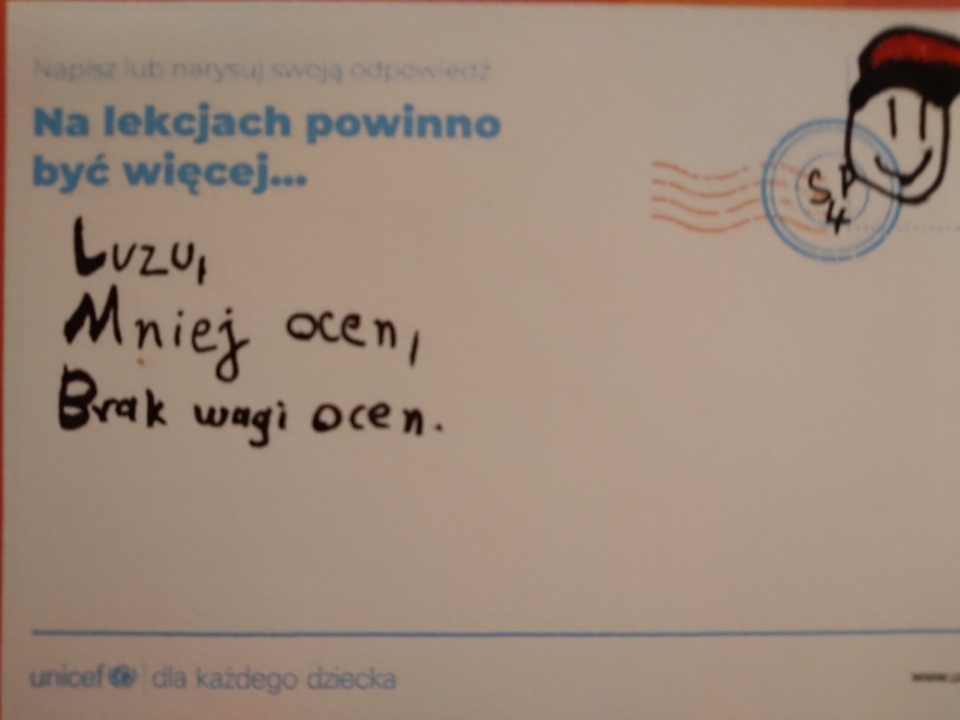 Napisz lub narysuj swoją odpowiedź
Na lekcjach powinno
być więcej...
SP
4
Luzu,
Mniej ocen,
Brak wagi ocen.
unicef dla każdego dziecka